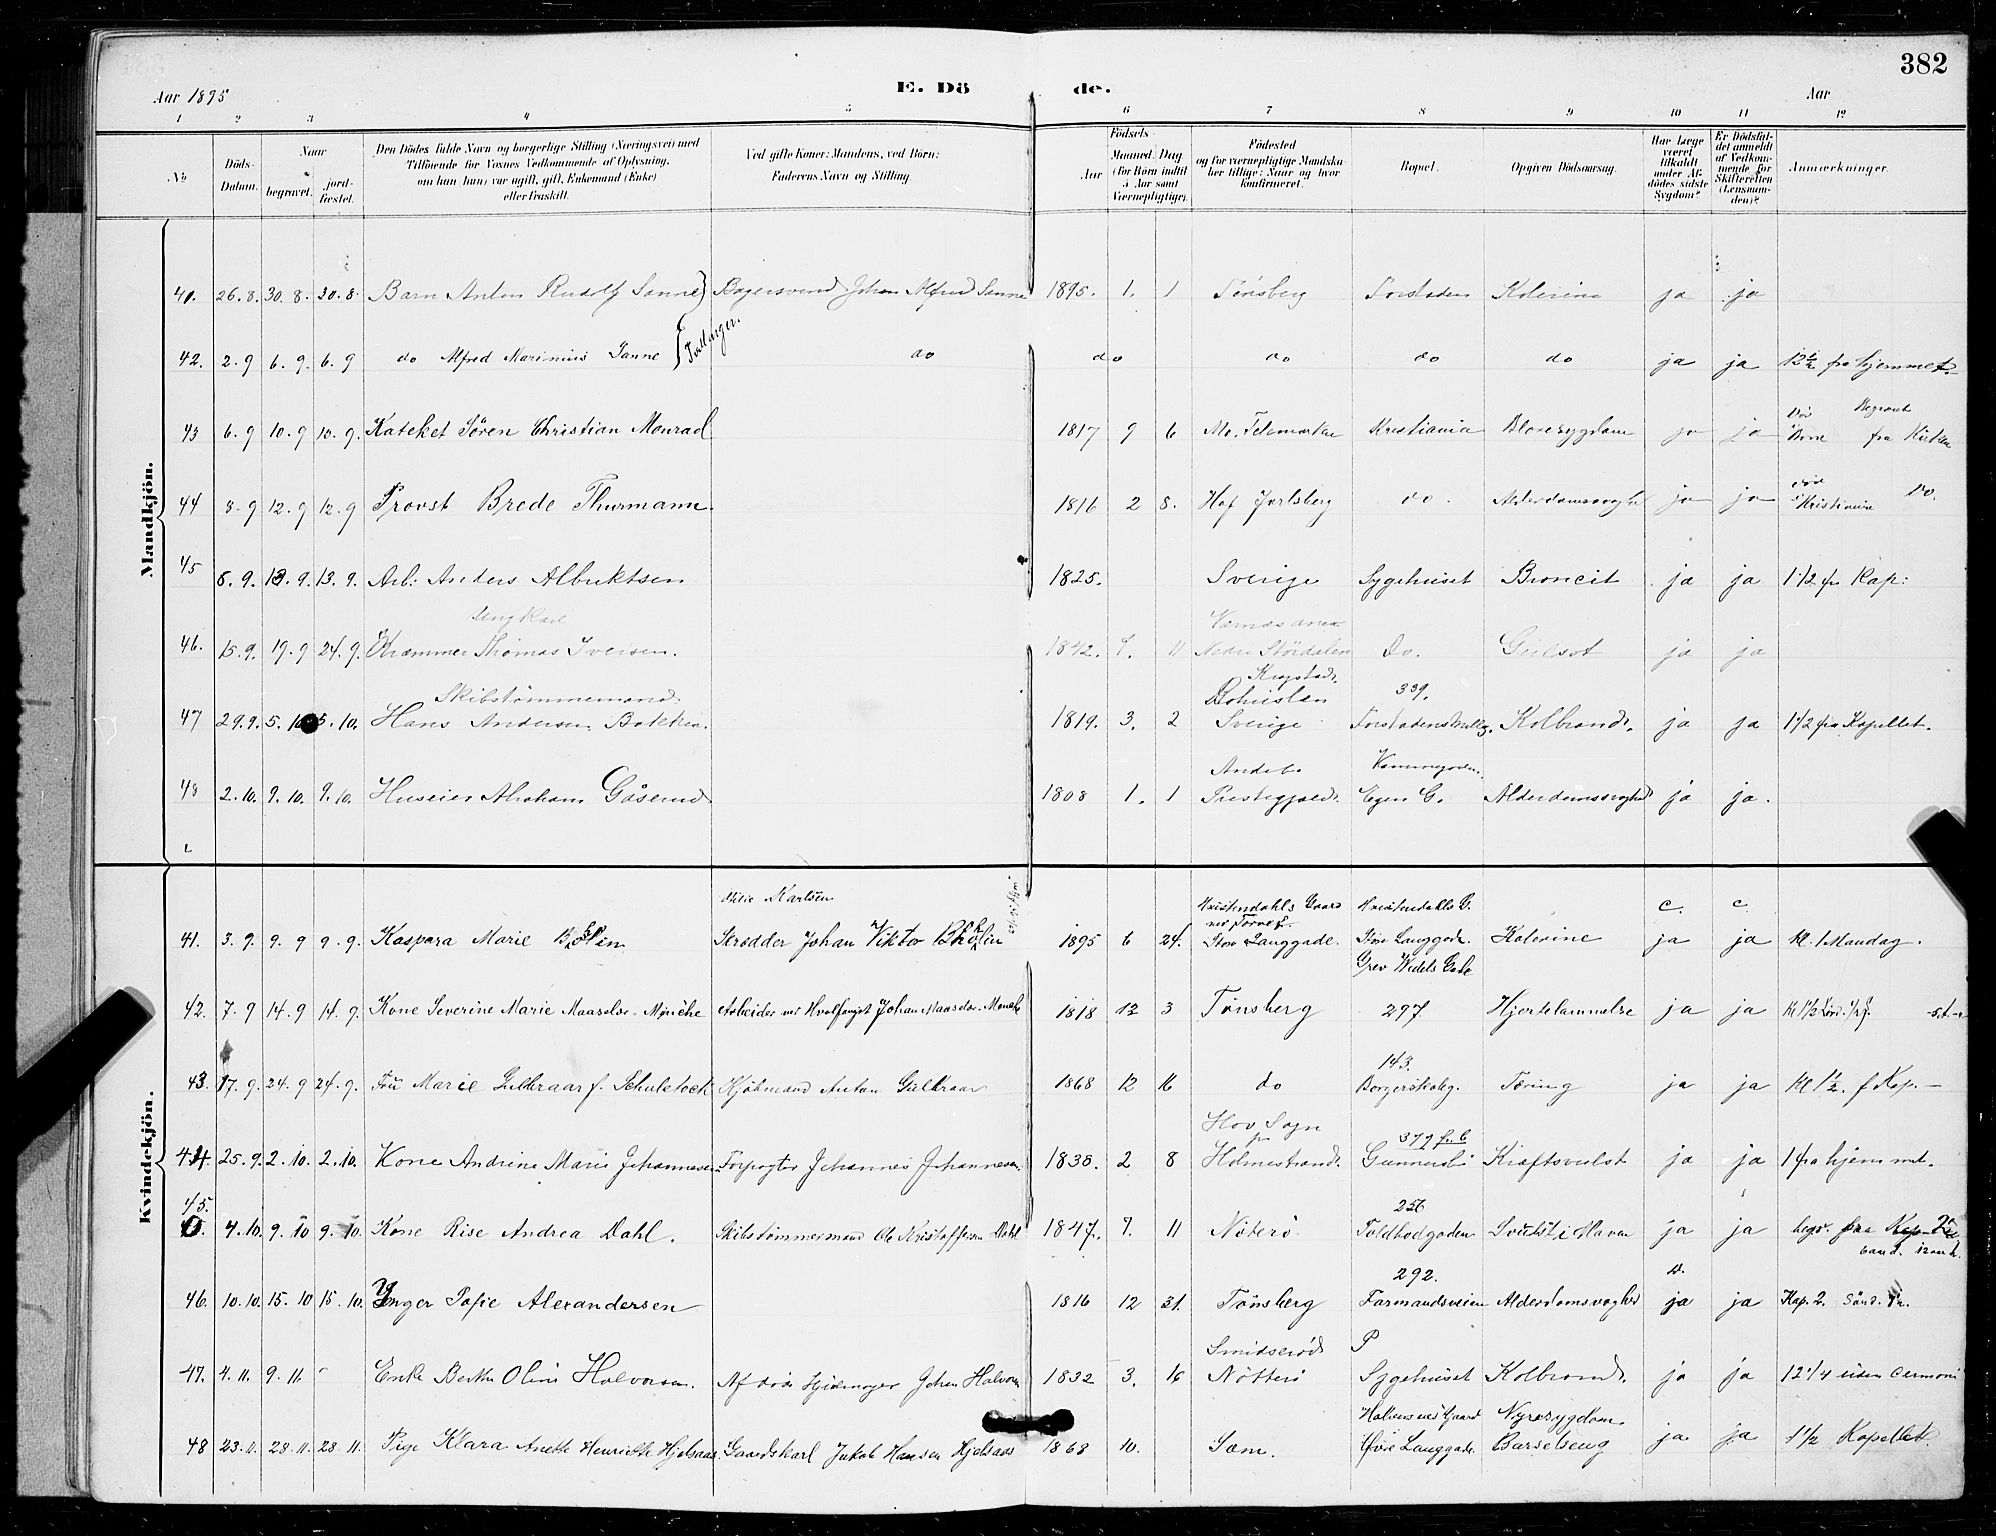 382
Aar 1895 E. Dö de. Aar
1 2 3 4 5 6 7 8 9 10 11 12
No Döds-Datum. Naar begravet. jord-fæstet. Den Dödes fulde Navn og borgerlige Stilling (Næringsvei) med Tilföiende for Voxnes Vedkommende af Oplysning, om han (hun) var ugift, gift, Enkemand (Enke) eller fraskilt. Ved gifte Koner: Mandens, ved Börn: Faderens Navn og Stilling. Födsels- Aar Maaned Dag (for Börn indtil 5 Aar samt Værnepligtige). Födested og for værnepligtige Mandska-ber tillige: Naar og hvor konfirmeret. Bopæl. Opgiven Dödsaarsag. Har Læge været tilkaldt under Af-dödes sidste Sygdom? Er Dödsfal-det anmeldt af Vedkom-mende for Skifteretten (Lensman-den)? Anmærkninger.
Mandkjön.
41. 26.8. 30.8. 30.8. Barn Anton Rudolf Sanne Bagersvend Johan Alfred Sanne 1895. 1. 1 Tönsberg Forstaden Kolerine ja ja
Tvillinger.
42. 2.9 6.9. 6.9 do Alfred Marinius Sanne do do do do do ja ja 12½ fra hjemmet.
43 6.9 10.9 10.9. Kateket Sören Christian Monrad 1817 9 6 Mo. Telemarken Kristiania Blæresygdom ja ja Begravet fra Kirken
44 8.9 12.9 12.9 Provst Brede Thurmann. 1816 2 8. Hof Jarlsberg do. Alderdomssvaghed ja ja Kristiania Do.
45 8.9. 13.9. 13.9. Arb: Anders Albrektsen 1825. Sverige Sygehuset Broncit ja ja 1 1/2 fr Kap:
Ungkarl
46. 15.9. 19.9 24.9. Kræmmer Thomas Iversen. 1842. 9. 11 Nedre Stördalen Do. Gulsot ja ja
Skibstømmermand.
Bohuslän
339.
47 29.9. 5.10 5.10. Hans Andersen Bakken. 1819. 3. 2 Sverige Kolbrand. ja ja 1 1/2 fra Kapellet.
Andebo
48 2.10. 9.10. 9.10. Huseier Abraham Gåserud 1808 1. 1 Præstegjæld. Egen G. Alderdomssvaghed ja ja.
Kvindekjön.
Karlsen
Kristendahls Gaard Kristendahls G.
ved Torvet
41. 3.9. 9.9 9.9. Kaspara Marie Skrædder Johan Viktor 1895 6 24. Store Langgade. Store Langgade. Kolerine ja ja Kl. 1 Mandag.
Grev Wedels Gade
42. 7.9 14.9 14.9. Kone Severine Marie Maaselse-Münche Arbeider ved Hvalfangst Johan 1818 12 3 Tønsberg 297 Hjertelammelse ja ja
143.
43. 17.9. 24.9 24.9. Frü Marie Gulkraar f. Schulstock Kjöbmand Anton Gulkraar 1868 12 16 do Borgerskoleg. Tæring ja ja Kl 1½. f Kap.
Hov Sogn
379
44. 25.9. 2.10. 2.10. Kone Andrine Marie Johannesen Forpagter Johannes Johannesen. 1838. 2 8 Holmestrand. Gunnersbö Kræftsvulst ja ja 1 fra hjemmet.
256
45. 4.10. 9.10 9.10. Kone Rise Andrea Dahl. Skibstömmermand Ole Kristoffersen Dahl 1847. 9. 11 Nöterö Toldbodgaden Svulst i Maven ja ja
292.
46. 10.10. 15.10 15.10. Ynger Sofie Alexandersen 1816 12 31. Tønsberg Farmandsveien Alderdomssvaghed ja ja Kap. 2.
Smidseröd P
47. 4.11. 9.11. Enke Berthe Oline Halvorsen. Afdöde Johan Halvorsen 1832 3. 16 Nötterö Sygehuset Kolbrand. ja ja 12 1/4 uden Cermoni
Nyresygdom
48 23.11. 28.11. 28.11. Pige Klara Anette Henriette Hjelsaas. Gaardskarl Jakob Hansen Hjelsaas 1868 10. Sem. Langgade. Barselseng ja ja 1 1/2 Kapellet.